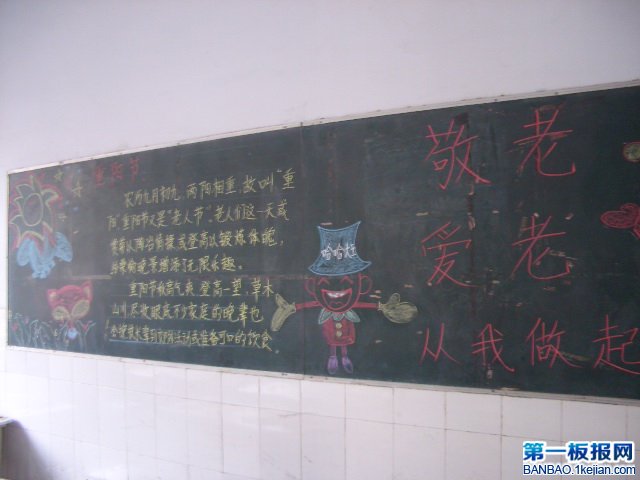 重阳节
农历九月初九,两阳相重,故叫“重
阳”重阳节又是“老人节”,老人们这一天或
赏菊以陶冶情操或登高以锻炼体魄,
给桑榆晚景增添了无限乐趣。
重阳节秋高气爽,登高一望,草木
山川,尽收眼底不少家庭的晚辈也
会搀扶长辈到郊外活动或准备可口的饮食
哈哈大
敬老
爱老
从我做起
第一板报网
BANBAO.1kejian.com